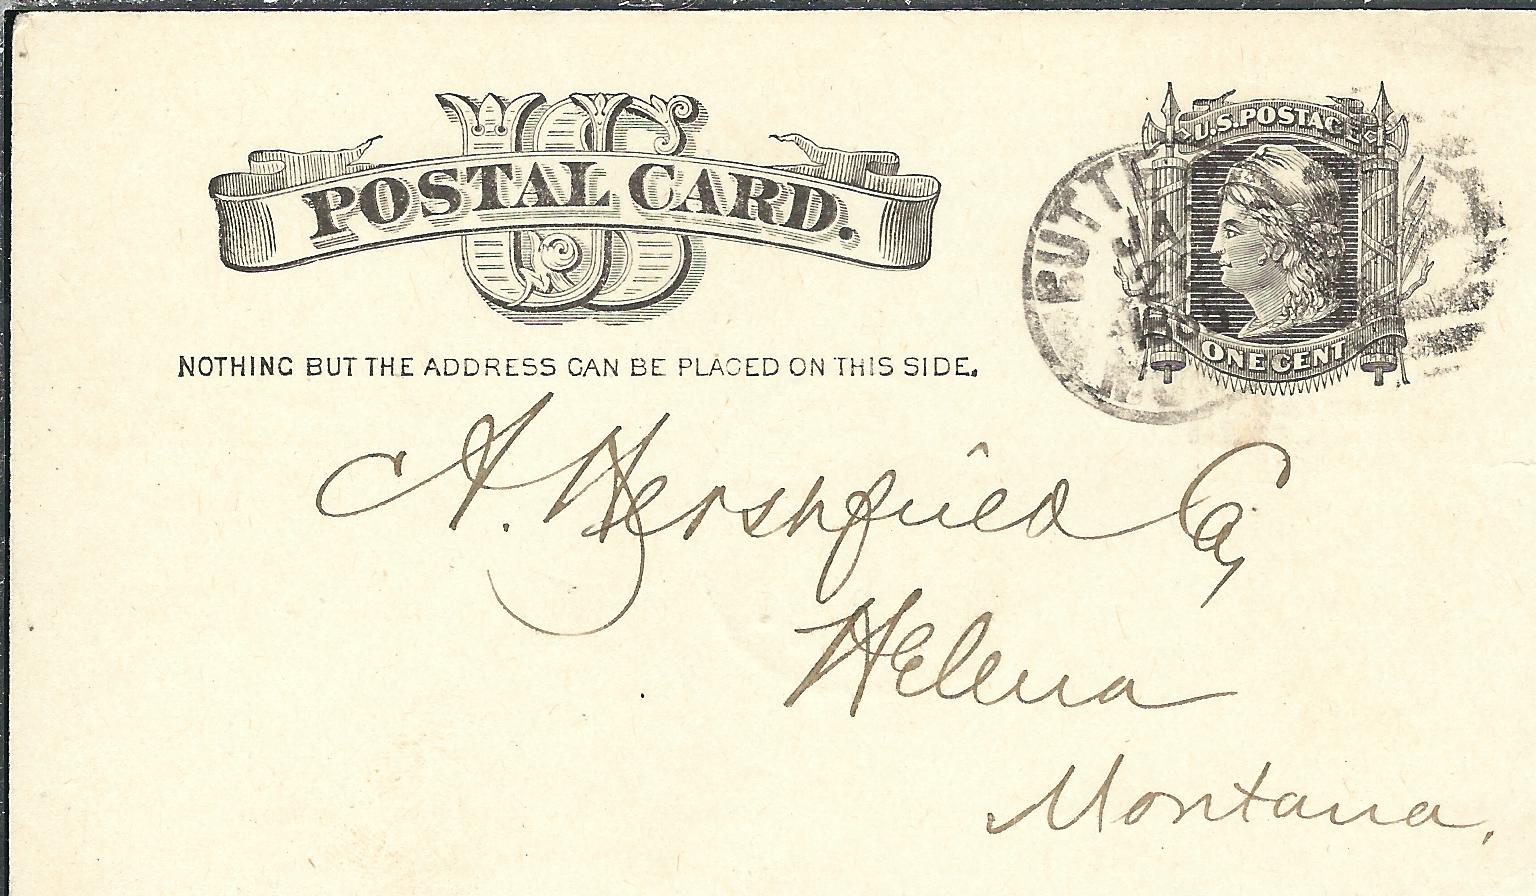 US
POSTAL CARD.
U.S. POSTAGE
ONE CENT
NOTHING BUT THE ADDRESS CAN BE PLACED ON THIS SIDE.
A. Hershfield Co,
Helena
Montana.